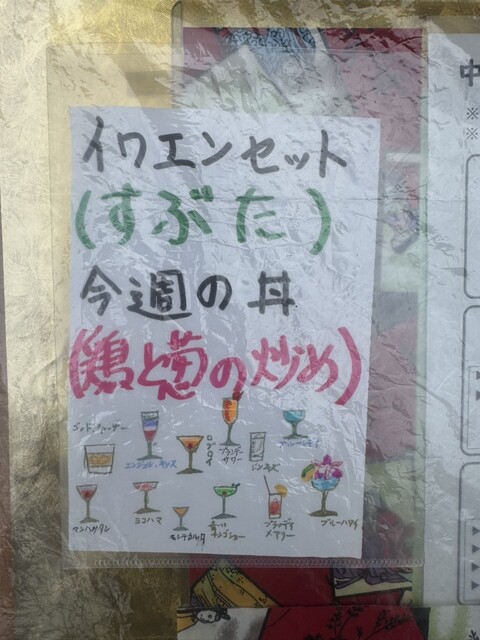 イワエンセット
(すぶた)
今週の丼
(鶏と葱の炒め)
ゴッドファーザー
エンジェル・キッス
ロブロイ
ブランデーサワー
ジンリッキー
ブルームーン
マンハッタン
ヨコハマ
モンテカルロ
ブラッディメアリー
ブルーハワイ
中
※
※